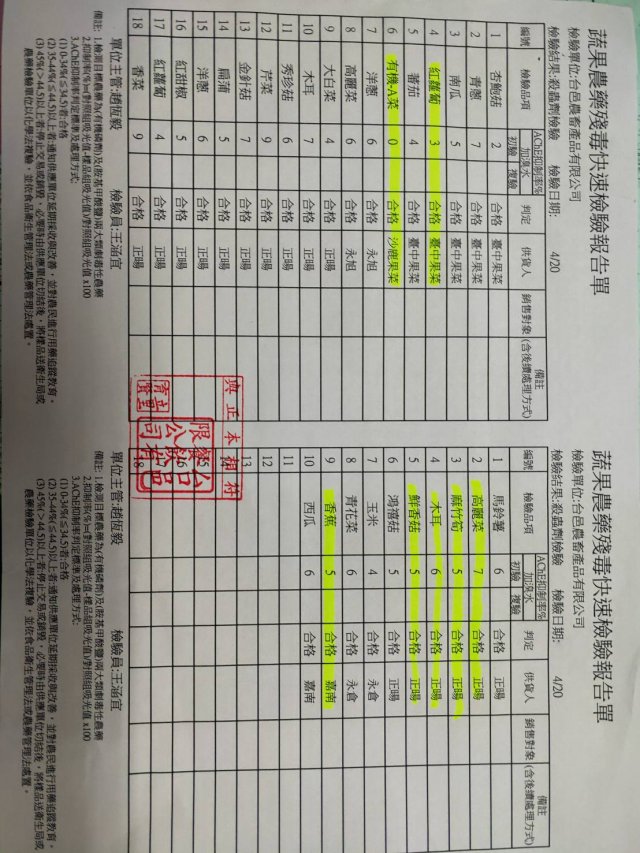 蔬果農藥殘毒快速檢驗報告單
檢驗單位:台邑農畜產品有限公司
檢驗結果:殺蟲劑檢驗 檢驗日期: 4/20
編號 檢驗品項 AChE抑制率% 加溴水 初驗 複驗 判定 供貨人 銷售對象 備註 (含後續處理方式)
1 杏鮑菇 2 合格 臺中果菜
2 青蔥 7 合格 臺中果菜
3 南瓜 5 合格 臺中果菜
4 紅蘿蔔 3 合格 臺中果菜
5 蕃茄 4 合格 臺中果菜
6 有機-A菜 0 合格 沙鹿果菜
7 洋蔥 6 合格 永旭
8 高麗菜 6 合格 永旭
9 大白菜 4 合格 正暘
10 木耳 7 合格 正暘
11 秀珍菇 6 合格 正暘
12 芹菜 9 合格 正暘
13 金針菇 7 合格 正暘
14 扁蒲 5 合格 正暘
15 洋蔥 6 合格 正暘
16 紅甜椒 5 合格 正暘
17 紅蘿蔔 4 合格 正暘
18 香菜 9 合格 正暘
單位主管:趙恆毅 檢驗員:王涵宜
備註: 1.檢測目標農藥為(有機磷劑)及(胺基甲酸鹽)兩大類劇毒性農藥
2.抑制率(%)=(對照組吸光值-樣品組吸光值)/對照組吸光值 x100
3.AChE抑制率判定標準及處理方式:
(1) 0-34%(≦34.5)者:合格
(2) 35-44%(≦44.5)以上者:通知供應單位延期採收與改善，並對農民進行用藥追蹤教育。
(3) 45%(>44.5)以上者:停止交易或銷毀，必要時由供應單位切結後，將樣品送衛生局或
農藥檢驗單位以化學法複驗，並依食品衛生管理法或農藥管理法處置。
與正本相符
蔬果農藥殘毒快速檢驗報告單
檢驗單位:台邑農畜產品有限公司
檢驗結果:殺蟲劑檢驗 檢驗日期: 4/20
編號 檢驗品項 AChE抑制率% 加溴水 初驗 複驗 判定 供貨人 銷售對象 備註 (含後續處理方式)
1 馬鈴薯 6 合格 正暘
2 高麗菜 7 合格 正暘
3 麻竹筍 5 合格 正暘
4 木耳 6 合格 正暘
5 鮮香菇 5 合格 正暘
6 鴻禧菇 5 合格 正暘
7 玉米 4 合格 永倉
8 青花菜 6 合格 永倉
9 香蕉 5 合格 嘉南
10 西瓜 6 合格 嘉南
11
12
13
14
15
16
17
18
單位主管:趙恆毅 檢驗員:王涵宜
備註: 1.檢測目標農藥為(有機磷劑)及(胺基甲酸鹽)兩大類劇毒性農藥
2.抑制率(%)=(對照組吸光值-樣品組吸光值)/對照組吸光值 x100
3.AChE抑制率判定標準及處理方式:
(1) 0-34%(≦34.5)者:合格
(2) 35-44%(≦44.5)以上者:通知供應單位延期採收與改善，並對農民進行用藥追蹤教育。
(3) 45%(>44.5)以上者:停止交易或銷毀，必要時由供應單位切結後，將樣品送衛生局或
農藥檢驗單位以化學法複驗，並依食品衛生管理法或農藥管理法處置。